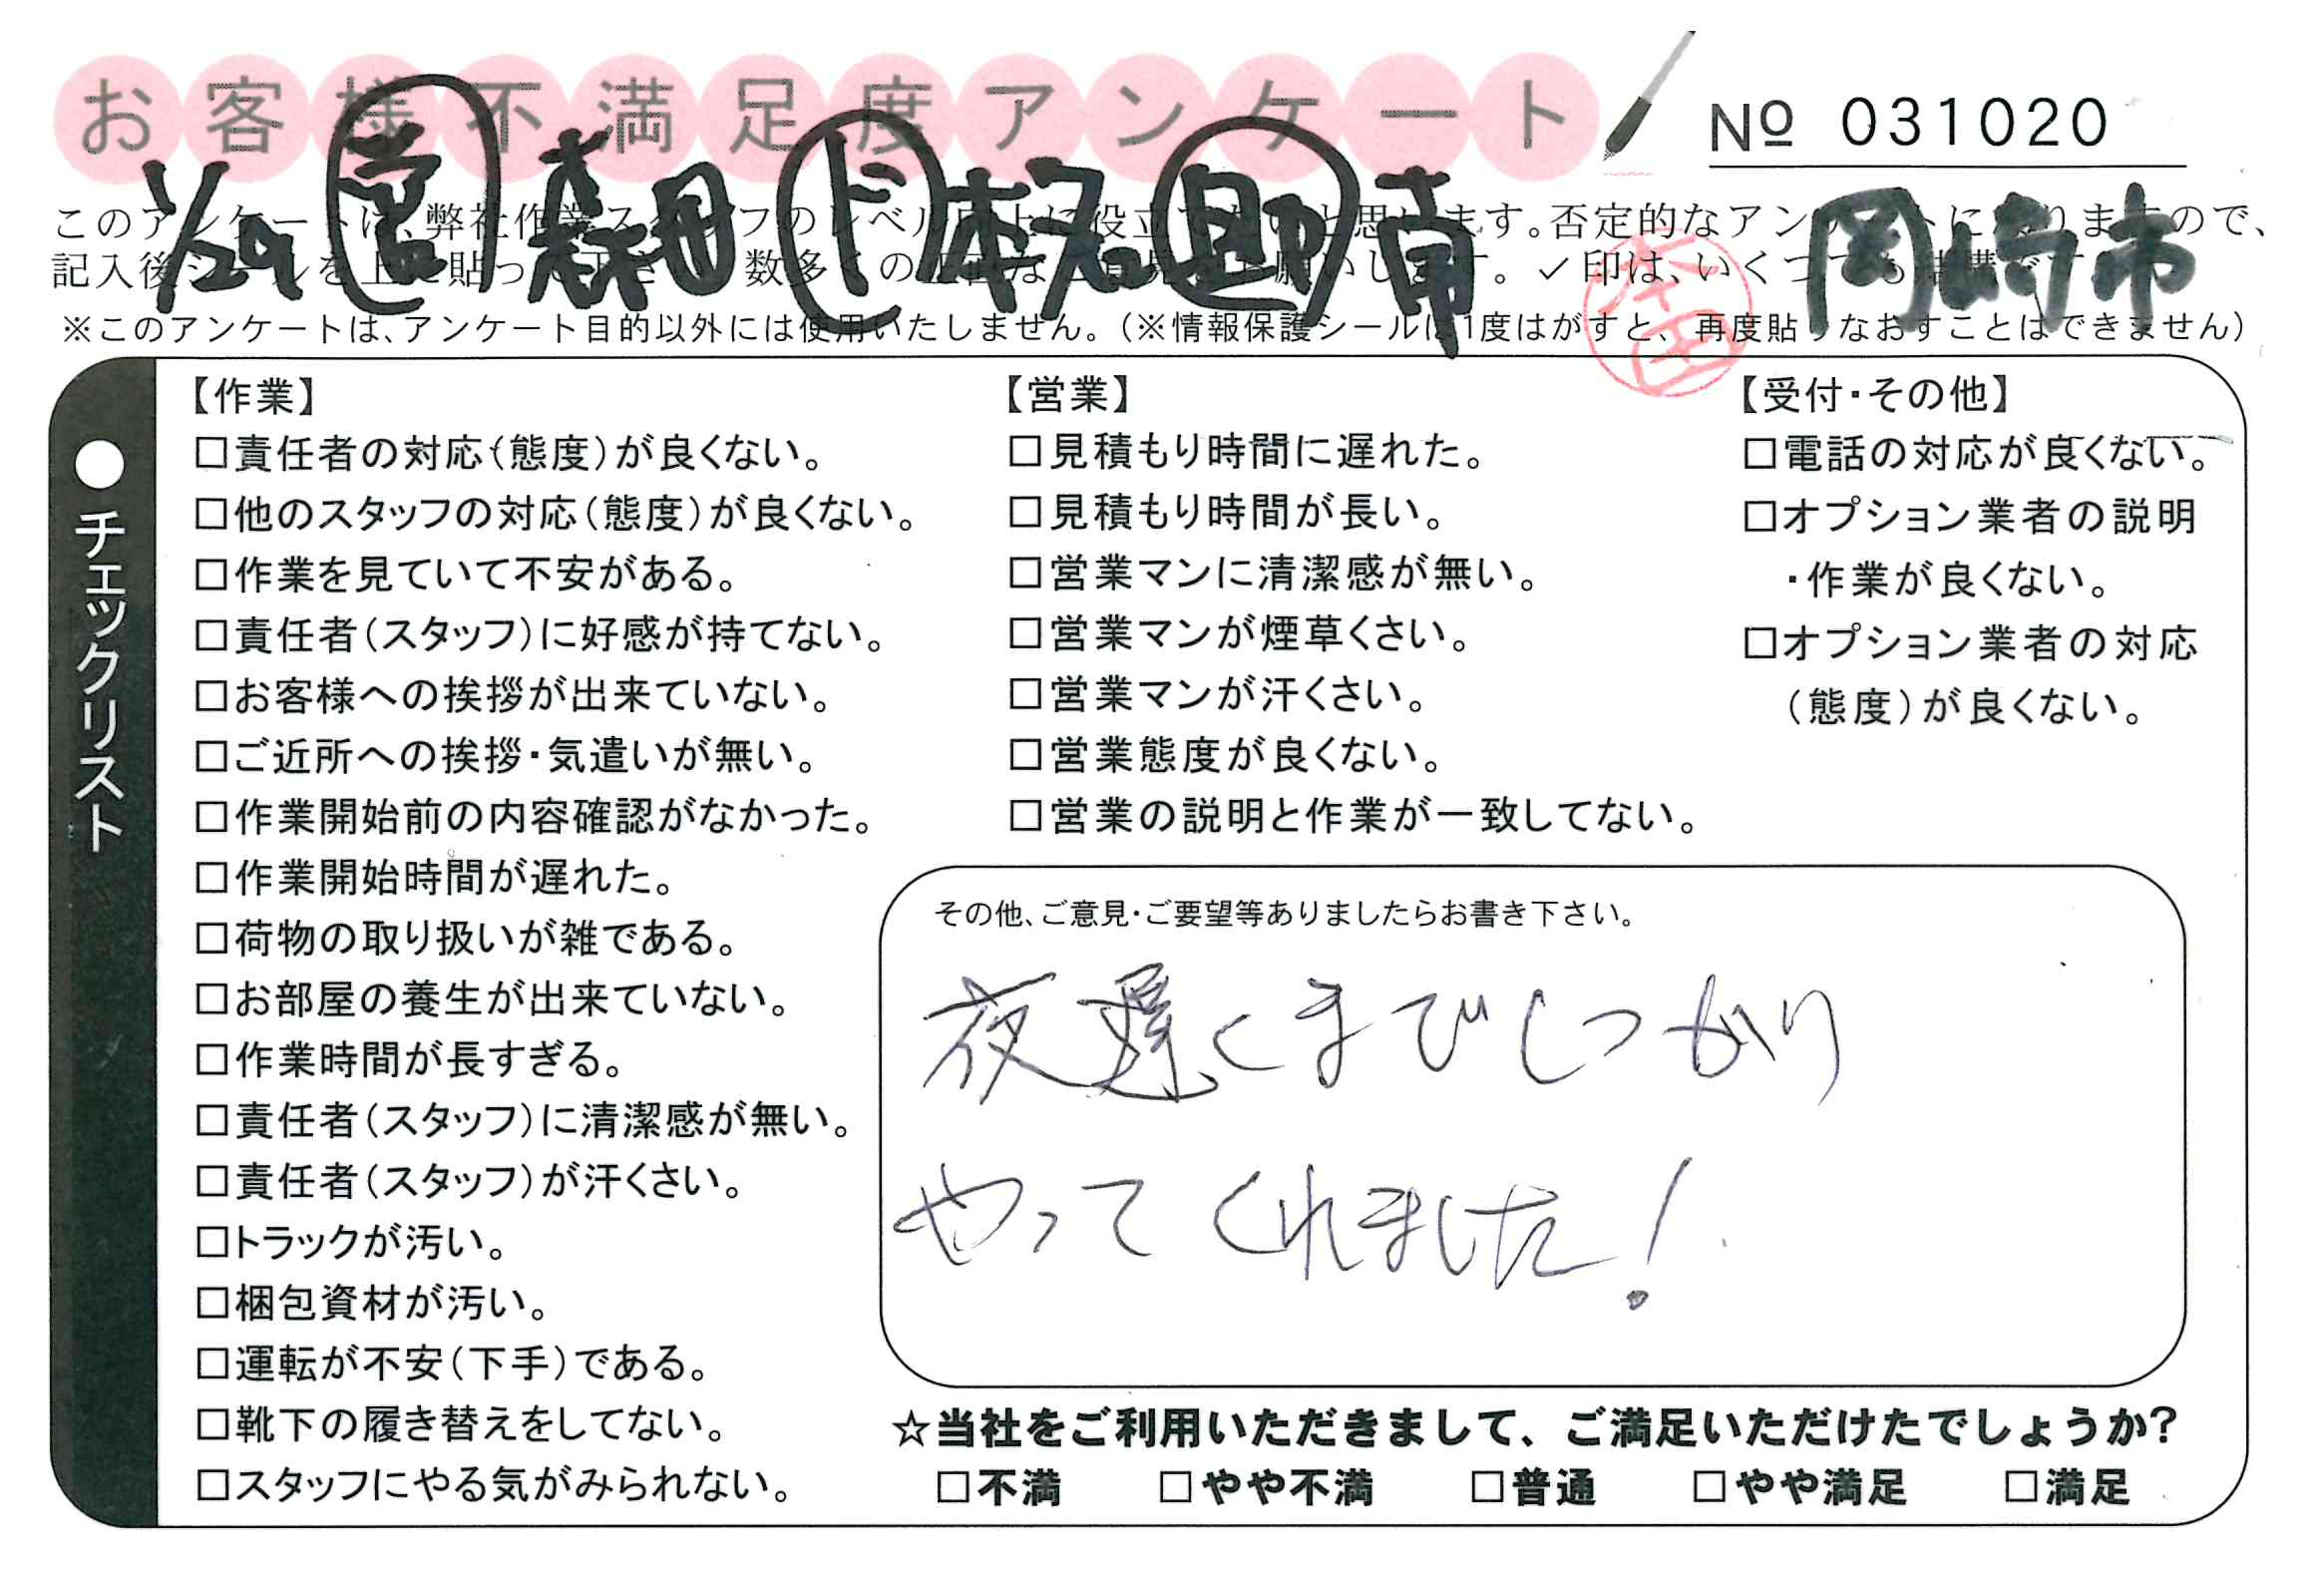 お客様不満足度アンケート
№ 031020
1/29 営 森田 ド 本名 助 南 岡崎市
このアンケートは、弊社作業スタッフのレベル向上に役立てたいと思います。否定的なアンケートになりますので、
記入後シールを上に貼って下さい。数多くの正直なご意見をお願いします。✓印は、いくつでも結構です。
※このアンケートは、アンケート目的以外には使用いたしません。（※情報保護シールは1度はがすと、再度貼りなおすことはできません）
●チェックリスト
【作業】
□責任者の対応（態度）が良くない。
□他のスタッフの対応（態度）が良くない。
□作業を見ていて不安がある。
□責任者（スタッフ）に好感が持てない。
□お客様への挨拶が出来ていない。
□ご近所への挨拶・気遣いが無い。
□作業開始前の内容確認がなかった。
□作業開始時間が遅れた。
□荷物の取り扱いが雑である。
□お部屋の養生が出来ていない。
□作業時間が長すぎる。
□責任者（スタッフ）に清潔感が無い。
□責任者（スタッフ）が汗くさい。
□トラックが汚い。
□梱包資材が汚い。
□運転が不安（下手）である。
□靴下の履き替えをしてない。
□スタッフにやる気がみられない。
【営業】
□見積もり時間に遅れた。
□見積もり時間が長い。
□営業マンに清潔感が無い。
□営業マンが煙草くさい。
□営業マンが汗くさい。
□営業態度が良くない。
□営業の説明と作業が一致してない。
【受付・その他】
□電話の対応が良くない。
□オプション業者の説明
・作業が良くない。
□オプション業者の対応
（態度）が良くない。
その他、ご意見・ご要望等ありましたらお書き下さい。
夜遅くまでしっかり
やってくれました！
☆当社をご利用いただきまして、ご満足いただけたでしょうか?
□不満 □やや不満 □普通 □やや満足 □満足